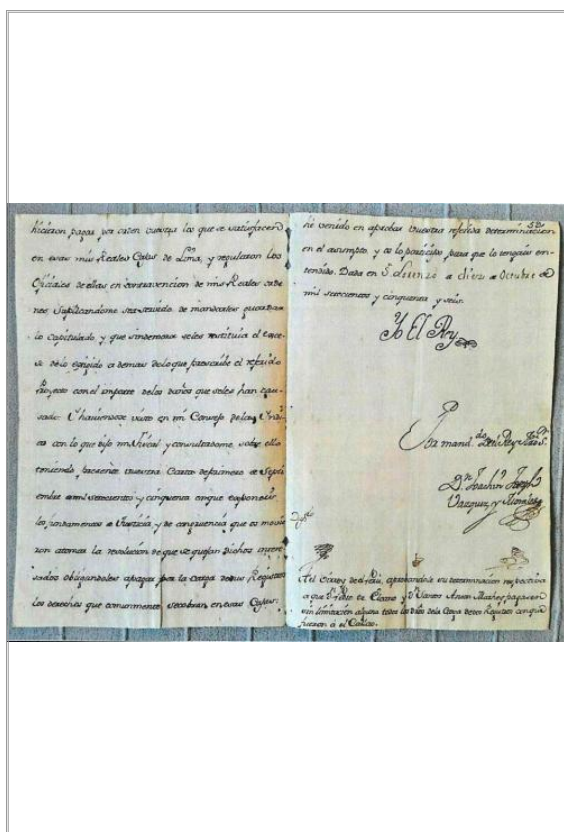 hicieron pagar por orden vuestra los que se satisfacen
en esas mis Reales Cajas de Lima, y regularon los
Oficiales de ellas en contravencion de mis Reales orde-
nes Suplicandome sea servido de mandar les guarden
lo capitulado, y que sin demora se les restituia el exce-
so de lo exijido a demas de lo que prescribe el referido
Proyecto con el importe de los daños que se les han cau-
sado. Y haviendose visto en mi Consejo de las Yndi-
as con lo que dijo mi Fiscal y consultadome sobre ello
teniendo presente vuestra Carta de primero de Septi-
embre de mil setecientos y cinquenta en que exponeis
los fundamentos de Justicia y de congruencia que os movie-
ron a tomar la resolucion de que se quejan dichos intere-
sados obligandoles a pagar por la carga de sus Registros
los derechos que comunmente se cobran en esas Cajas:
he venido en aprobar vuestra referida determinacion
en el asumpto, y os lo participo para que lo tengais en-
tendido. Dada en Sn. Lorenzo a diez de Octubre de
mil setecientos y cinquenta y seis.
Yo El Rey
Por mand.do del Rey Ntro. Sr.
Dn. Joachin Joseph
Vazquez y Morales
Al Virrey del Perú, aprobandole su determinacion respectiva
a que Dn. de Claro y Dn. Santos Muñoz pagasen
sin limitacion alguna todos los dros de la Carga de sus Registros con que
fueron a el Callao.